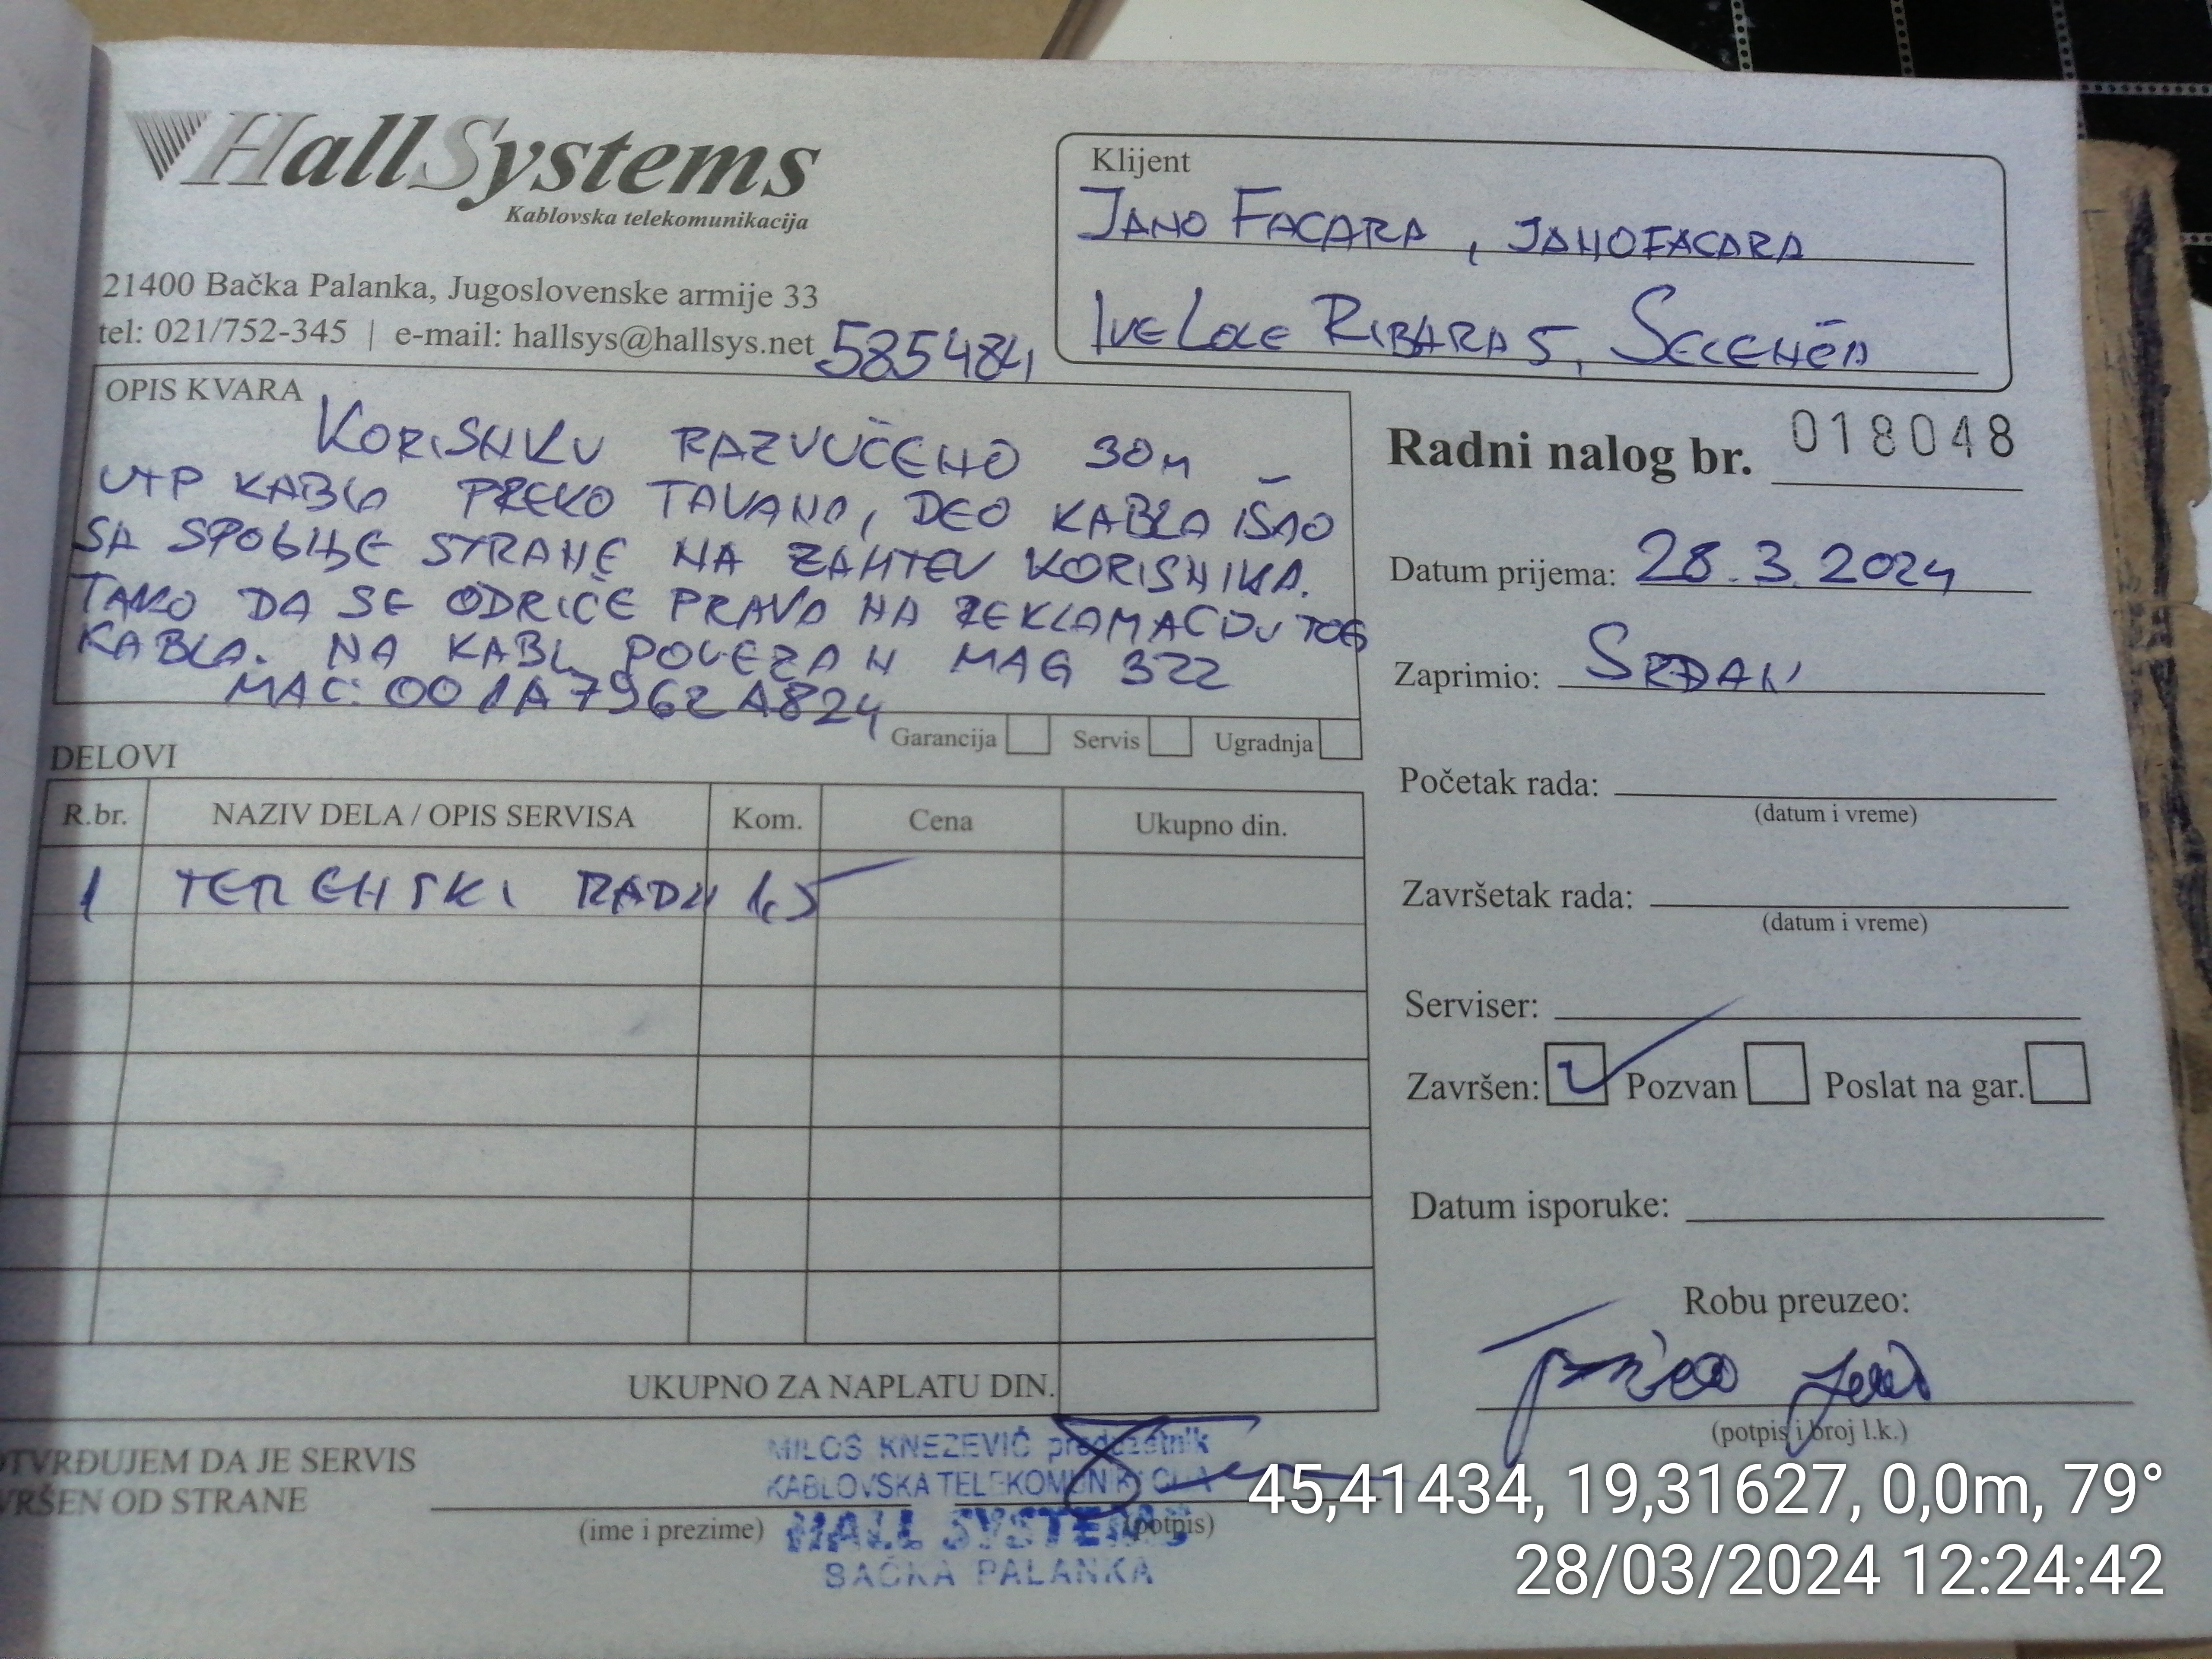 HallSystems
Kablovska telekomunikacija
21400 Bačka Palanka, Jugoslovenske armije 33
tel: 021/752-345 | e-mail: hallsys@hallsys.net
585484
Klijent
JANO FACARA, JANOFACARA
IVE LOLE RIBARA 5,
OPIS KVARA
KORISNIKU RAZVUČENO 30m
UTP KABLA PREKO TAVANA, DEO KABLA IŠAO
SA SPOLJNE STRANE NA ZAHTEV KORISNIKA.
TAKO DA SE ODRIČE PRAVA NA REKLAMACIJU TOG
KABLA. NA KABL POVEZAN MAG 322
MAC: 001A7962A824
Garancija Servis Ugradnja
Radni nalog br. 018048
Datum prijema: 28.3.2024
Zaprimio: SRĐAN
Početak rada:
(datum i vreme)
Završetak rada:
(datum i vreme)
Serviser:
Završen: Pozvan Poslat na gar.
Datum isporuke:
Robu preuzeo:
(potpis i broj l.k.)
DELOVI
R.br. NAZIV DELA / OPIS SERVISA Kom. Cena Ukupno din.
1 TERENSKI RADN 1,5
UKUPNO ZA NAPLATU DIN.
OTVRĐUJEM DA JE SERVIS
VRŠEN OD STRANE
(ime i prezime)
(potpis)
MILOŠ KNEŽEVIĆ preduzetnik
KABLOVSKA TELEKOMUNIKACIJA
HALL SYSTEMS
BAČKA PALANKA
45,41434, 19,31627, 0,0m, 79°
28/03/2024 12:24:42